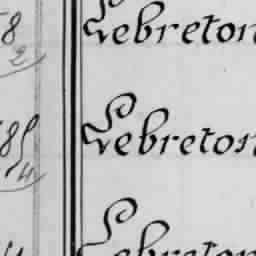 8 Lebreton
2
85 Lebreton
4
Lebreton